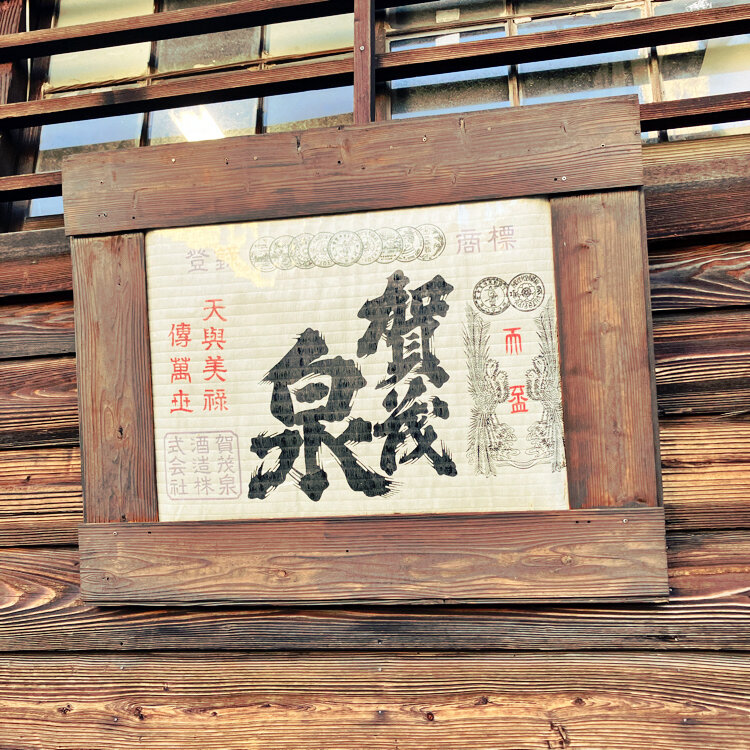 登録商標
盃
賀茂
泉
天與美禄
傳萬世
賀茂泉
酒造株
式会社